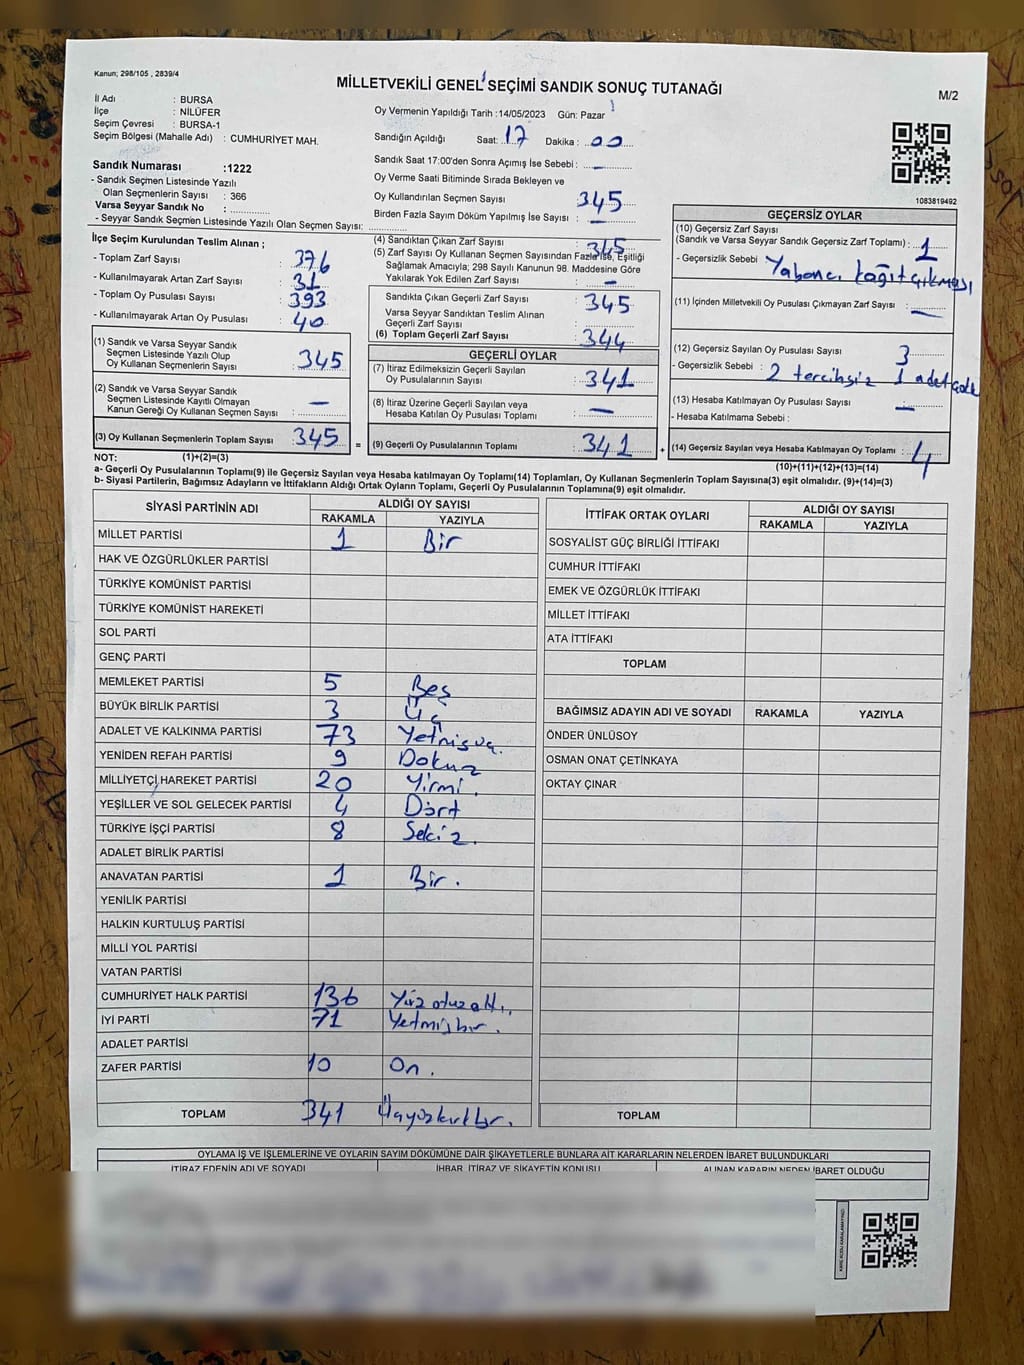 Kanun; 298/105 , 2839/4
MİLLETVEKİLİ GENEL SEÇİMİ SANDIK SONUÇ TUTANAĞI
M/2
İl Adı : BURSA
İlçe : NİLÜFER
Seçim Çevresi : BURSA-1
Seçim Bölgesi (Mahalle Adı) : CUMHURİYET MAH.
Sandık Numarası :1222
- Sandık Seçmen Listesinde Yazılı
Olan Seçmenlerin Sayısı : 366
Varsa Seyyar Sandık No :
- Seyyar Sandık Seçmen Listesinde Yazılı Olan Seçmen Sayısı:
Oy Vermenin Yapıldığı Tarih :14/05/2023 Gün: Pazar
Sandığın Açıldığı Saat: 17 Dakika : 00
Sandık Saat 17:00'den Sonra Açımış İse Sebebi : —
Oy Verme Saati Bitiminde Sırada Bekleyen ve
Oy Kullandırılan Seçmen Sayısı : 345
Birden Fazla Sayım Döküm Yapılmış İse Sayısı : —
1083819492
İlçe Seçim Kurulundan Teslim Alınan ;
- Toplam Zarf Sayısı : 376
- Kullanılmayarak Artan Zarf Sayısı : 31
- Toplam Oy Pusulası Sayısı : 393
- Kullanılmayarak Artan Oy Pusulası : 40
(1) Sandık ve Varsa Seyyar Sandık
Seçmen Listesinde Yazılı Olup
Oy Kullanan Seçmenlerin Sayısı : 345
(2) Sandık ve Varsa Seyyar Sandık
Seçmen Listesinde Kayıtlı Olmayan
Kanun Gereği Oy Kullanan Seçmen Sayısı : —
(3) Oy Kullanan Seçmenlerin Toplam Sayısı : 345 =
(4) Sandıktan Çıkan Zarf Sayısı : 345
(5) Zarf Sayısı Oy Kullanan Seçmen Sayısından Fazla İse, Eşitliği
Sağlamak Amacıyla; 298 Sayılı Kanunun 98. Maddesine Göre
Yakılarak Yok Edilen Zarf Sayısı : —
Sandıkta Çıkan Geçerli Zarf Sayısı : 345
Varsa Seyyar Sandıktan Teslim Alınan
Geçerli Zarf Sayısı :
(6) Toplam Geçerli Zarf Sayısı : 344
GEÇERLİ OYLAR
(7) İtiraz Edilmeksizin Geçerli Sayılan
Oy Pusulalarının Sayısı : 341
(8) İtiraz Üzerine Geçerli Sayılan veya
Hesaba Katılan Oy Pusulası Toplamı : —
(9) Geçerli Oy Pusulalarının Toplamı : 341 +
GEÇERSİZ OYLAR
(10) Geçersiz Zarf Sayısı
(Sandık ve Varsa Seyyar Sandık Geçersiz Zarf Toplamı) : 1
- Geçersizlik Sebebi : Yabancı kağıt çıkması
(11) İçinden Milletvekili Oy Pusulası Çıkmayan Zarf Sayısı : —
(12) Geçersiz Sayılan Oy Pusulası Sayısı : 3
- Geçersizlik Sebebi : 2 tercihsiz 1 adet
(13) Hesaba Katılmayan Oy Pusulası Sayısı : —
- Hesaba Katılmama Sebebi :
(14) Geçersiz Sayılan veya Hesaba Katılmayan Oy Toplamı : 4
(10)+(11)+(12)+(13)=(14)
NOT: (1)+(2)=(3)
a- Geçerli Oy Pusulalarının Toplamı(9) ile Geçersiz Sayılan veya Hesaba katılmayan Oy Toplamı(14) Toplamları, Oy Kullanan Seçmenlerin Toplam Sayısına(3) eşit olmalıdır. (9)+(14)=(3)
b- Siyasi Partilerin, Bağımsız Adayların ve İttifakların Aldığı Ortak Oyların Toplamı, Geçerli Oy Pusulalarının Toplamına(9) eşit olmalıdır.
SİYASİ PARTİNİN ADI ALDIĞI OY SAYISI
RAKAMLA YAZIYLA
MİLLET PARTİSİ 1 Bir
HAK VE ÖZGÜRLÜKLER PARTİSİ
TÜRKİYE KOMÜNİST PARTİSİ
TÜRKİYE KOMÜNİST HAREKETİ
SOL PARTİ
GENÇ PARTİ
MEMLEKET PARTİSİ 5 Beş
BÜYÜK BİRLİK PARTİSİ 3 Üç
ADALET VE KALKINMA PARTİSİ 73 Yetmişüç.
YENİDEN REFAH PARTİSİ 9 Dokuz
MİLLİYETÇİ HAREKET PARTİSİ 20 Yirmi.
YEŞİLLER VE SOL GELECEK PARTİSİ 4 Dört
TÜRKİYE İŞÇİ PARTİSİ 8 Sekiz.
ADALET BİRLİK PARTİSİ
ANAVATAN PARTİSİ 1 Bir.
YENİLİK PARTİSİ
HALKIN KURTULUŞ PARTİSİ
MİLLİ YOL PARTİSİ
VATAN PARTİSİ
CUMHURİYET HALK PARTİSİ 136 Yüz otuz altı.
İYİ PARTİ 71 Yetmişbir.
ADALET PARTİSİ
ZAFER PARTİSİ 10 On.
TOPLAM 341 Üçyüzkırkbir.
İTTİFAK ORTAK OYLARI ALDIĞI OY SAYISI
RAKAMLA YAZIYLA
SOSYALİST GÜÇ BİRLİĞİ İTTİFAKI
CUMHUR İTTİFAKI
EMEK VE ÖZGÜRLÜK İTTİFAKI
MİLLET İTTİFAKI
ATA İTTİFAKI
TOPLAM
BAĞIMSIZ ADAYIN ADI VE SOYADI RAKAMLA YAZIYLA
ÖNDER ÜNLÜSOY
OSMAN ONAT ÇETİNKAYA
OKTAY ÇINAR
TOPLAM
OYLAMA İŞ VE İŞLEMLERİNE VE OYLARIN SAYIM DÖKÜMÜNE DAİR ŞİKAYETLERLE BUNLARA AİT KARARLARIN NELERDEN İBARET BULUNDUKLARI
İTİRAZ EDENİN ADI VE SOYADI İHBAR, İTİRAZ VE ŞİKAYETİN KONUSU ALINAN KARARIN NEDEN İBARET OLDUĞU
KARE KODU KARALAMAYINIZ!